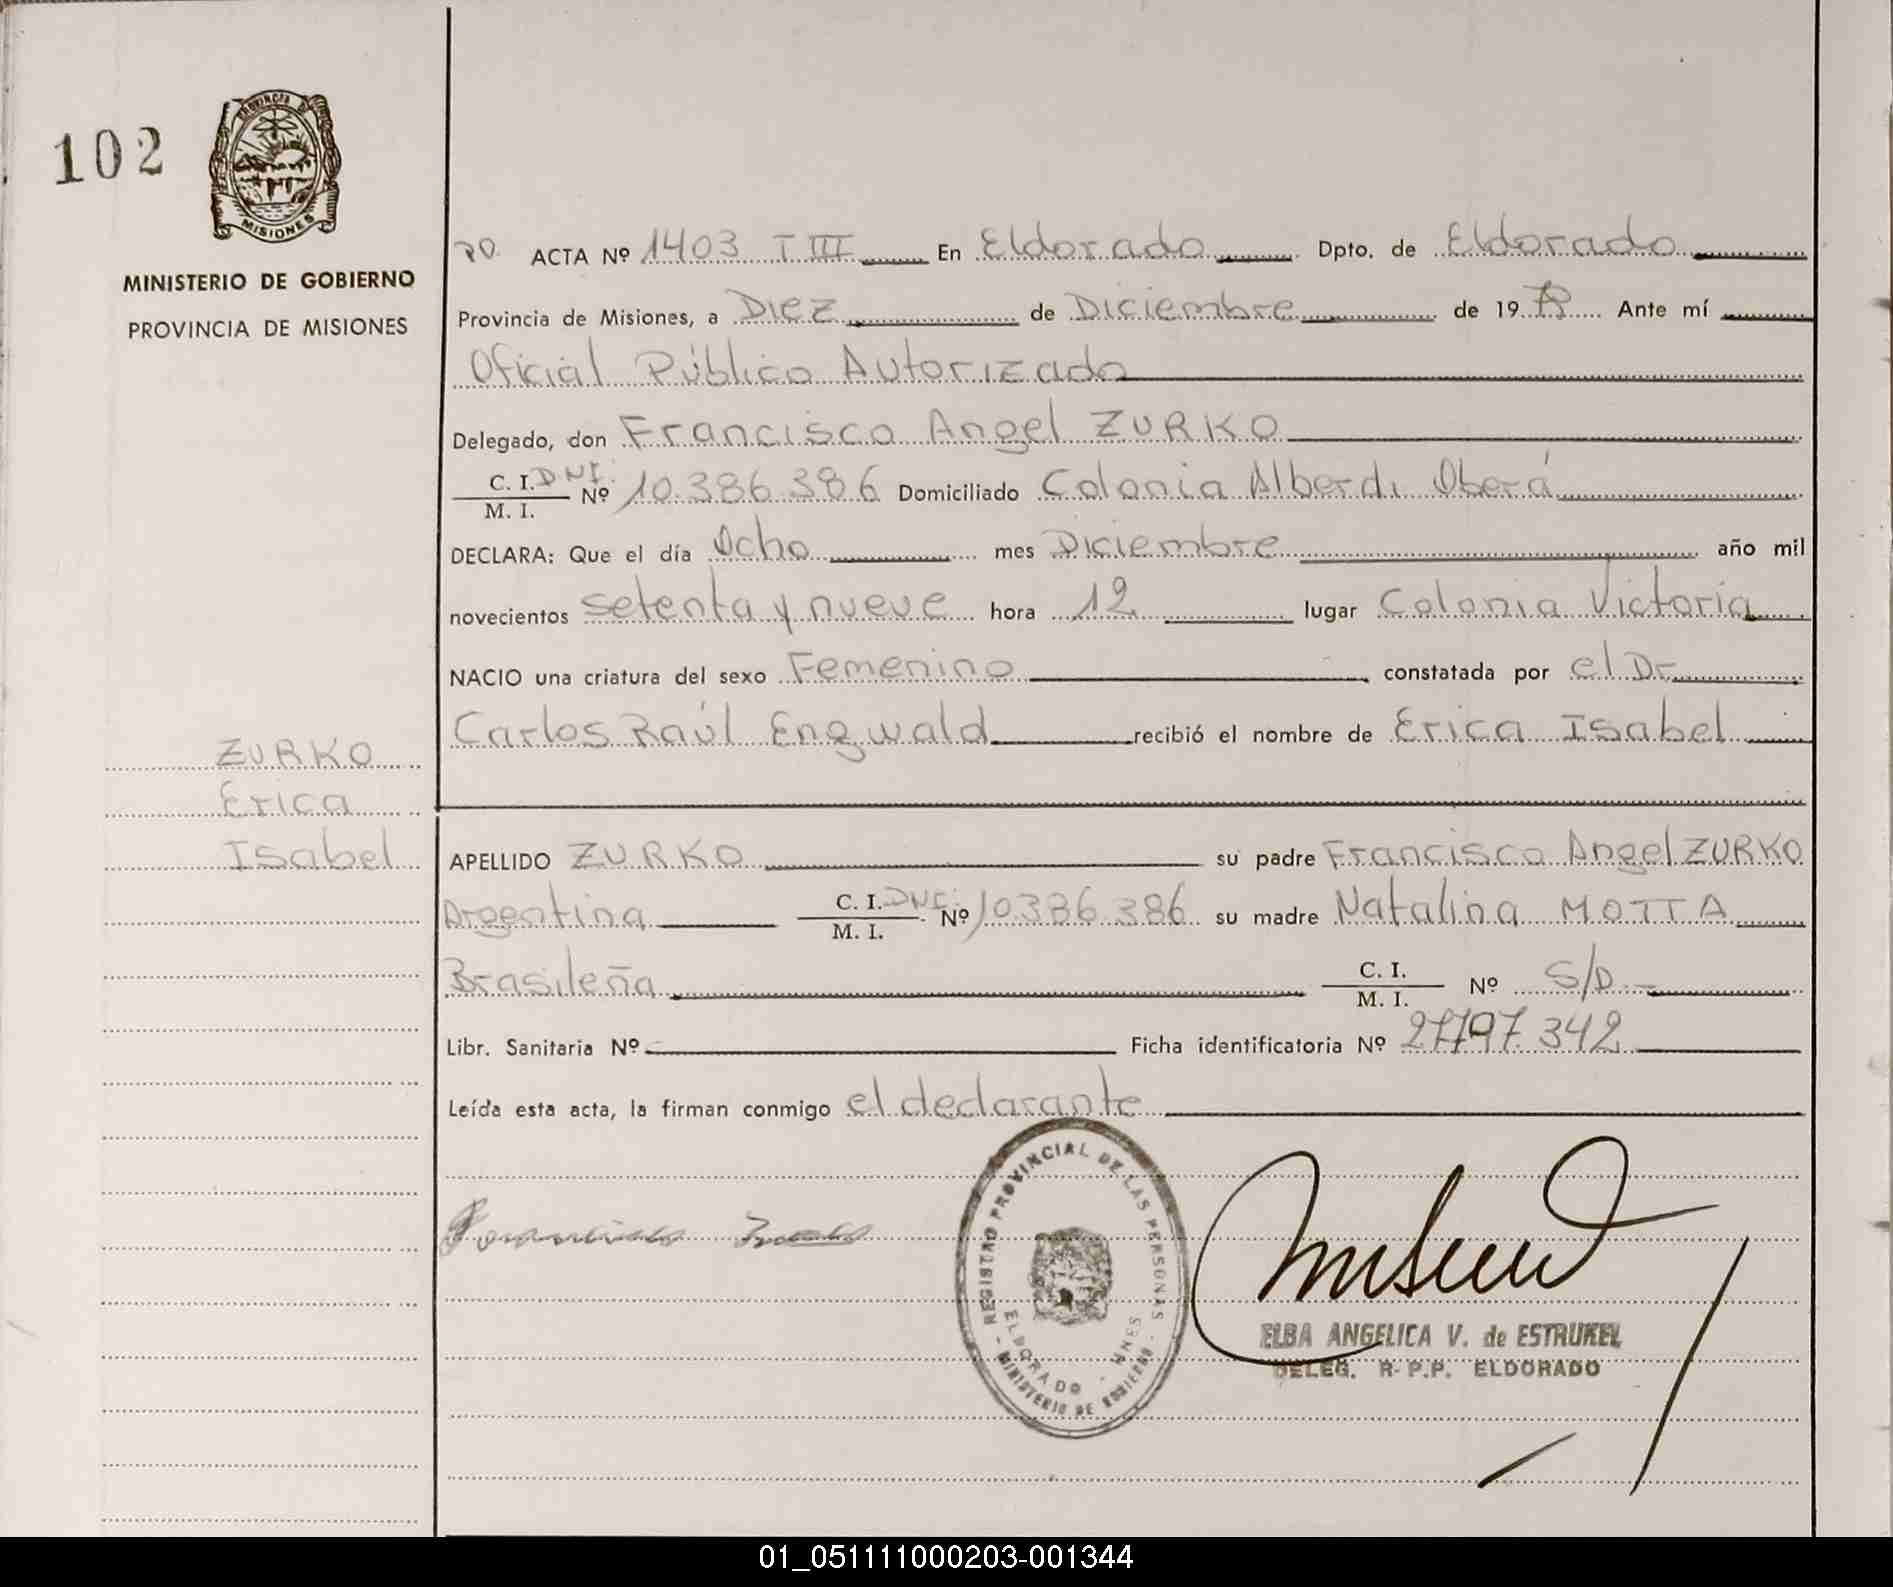 102
PROVINCIA DE
MISIONES
MINISTERIO DE GOBIERNO
PROVINCIA DE MISIONES
ACTA Nº 1403 T III En Eldorado Dpto. de Eldorado
Provincia de Misiones, a Diez de Diciembre de 19 Ante mí
Oficial Público Autorizado
Delegado, don Francisco Angel ZURKO
C. I. DNI. Nº 10.386.386 Domiciliado Colonia Alberdi Oberá
M. I.
DECLARA: Que el día Ocho mes Diciembre año mil
novecientos setenta y nueve hora 12 lugar Colonia Victoria
NACIO una criatura del sexo Femenino constatada por el Dr
Carlos Raúl Engwald recibió el nombre de Erica Isabel
ZURKO
Erica
Isabel
APELLIDO ZURKO su padre Francisco Angel ZURKO
Argentina C. I. DNI. Nº 10.386.386 su madre Natalina MOTTA
M. I.
Brasileña C. I. Nº S/D.-
M. I.
Libr. Sanitaria Nº Ficha identificatoria Nº 27797.342
Leída esta acta, la firman conmigo el declarante
REGISTRO PROVINCIAL DE LAS PERSONAS
ELDORADO - MNES
- MINISTERIO DE GOBIERNO -
Francisco
ELBA ANGELICA V. de ESTRUKEL
DELEG. R. P.P. ELDORADO
01_051111000203-001344